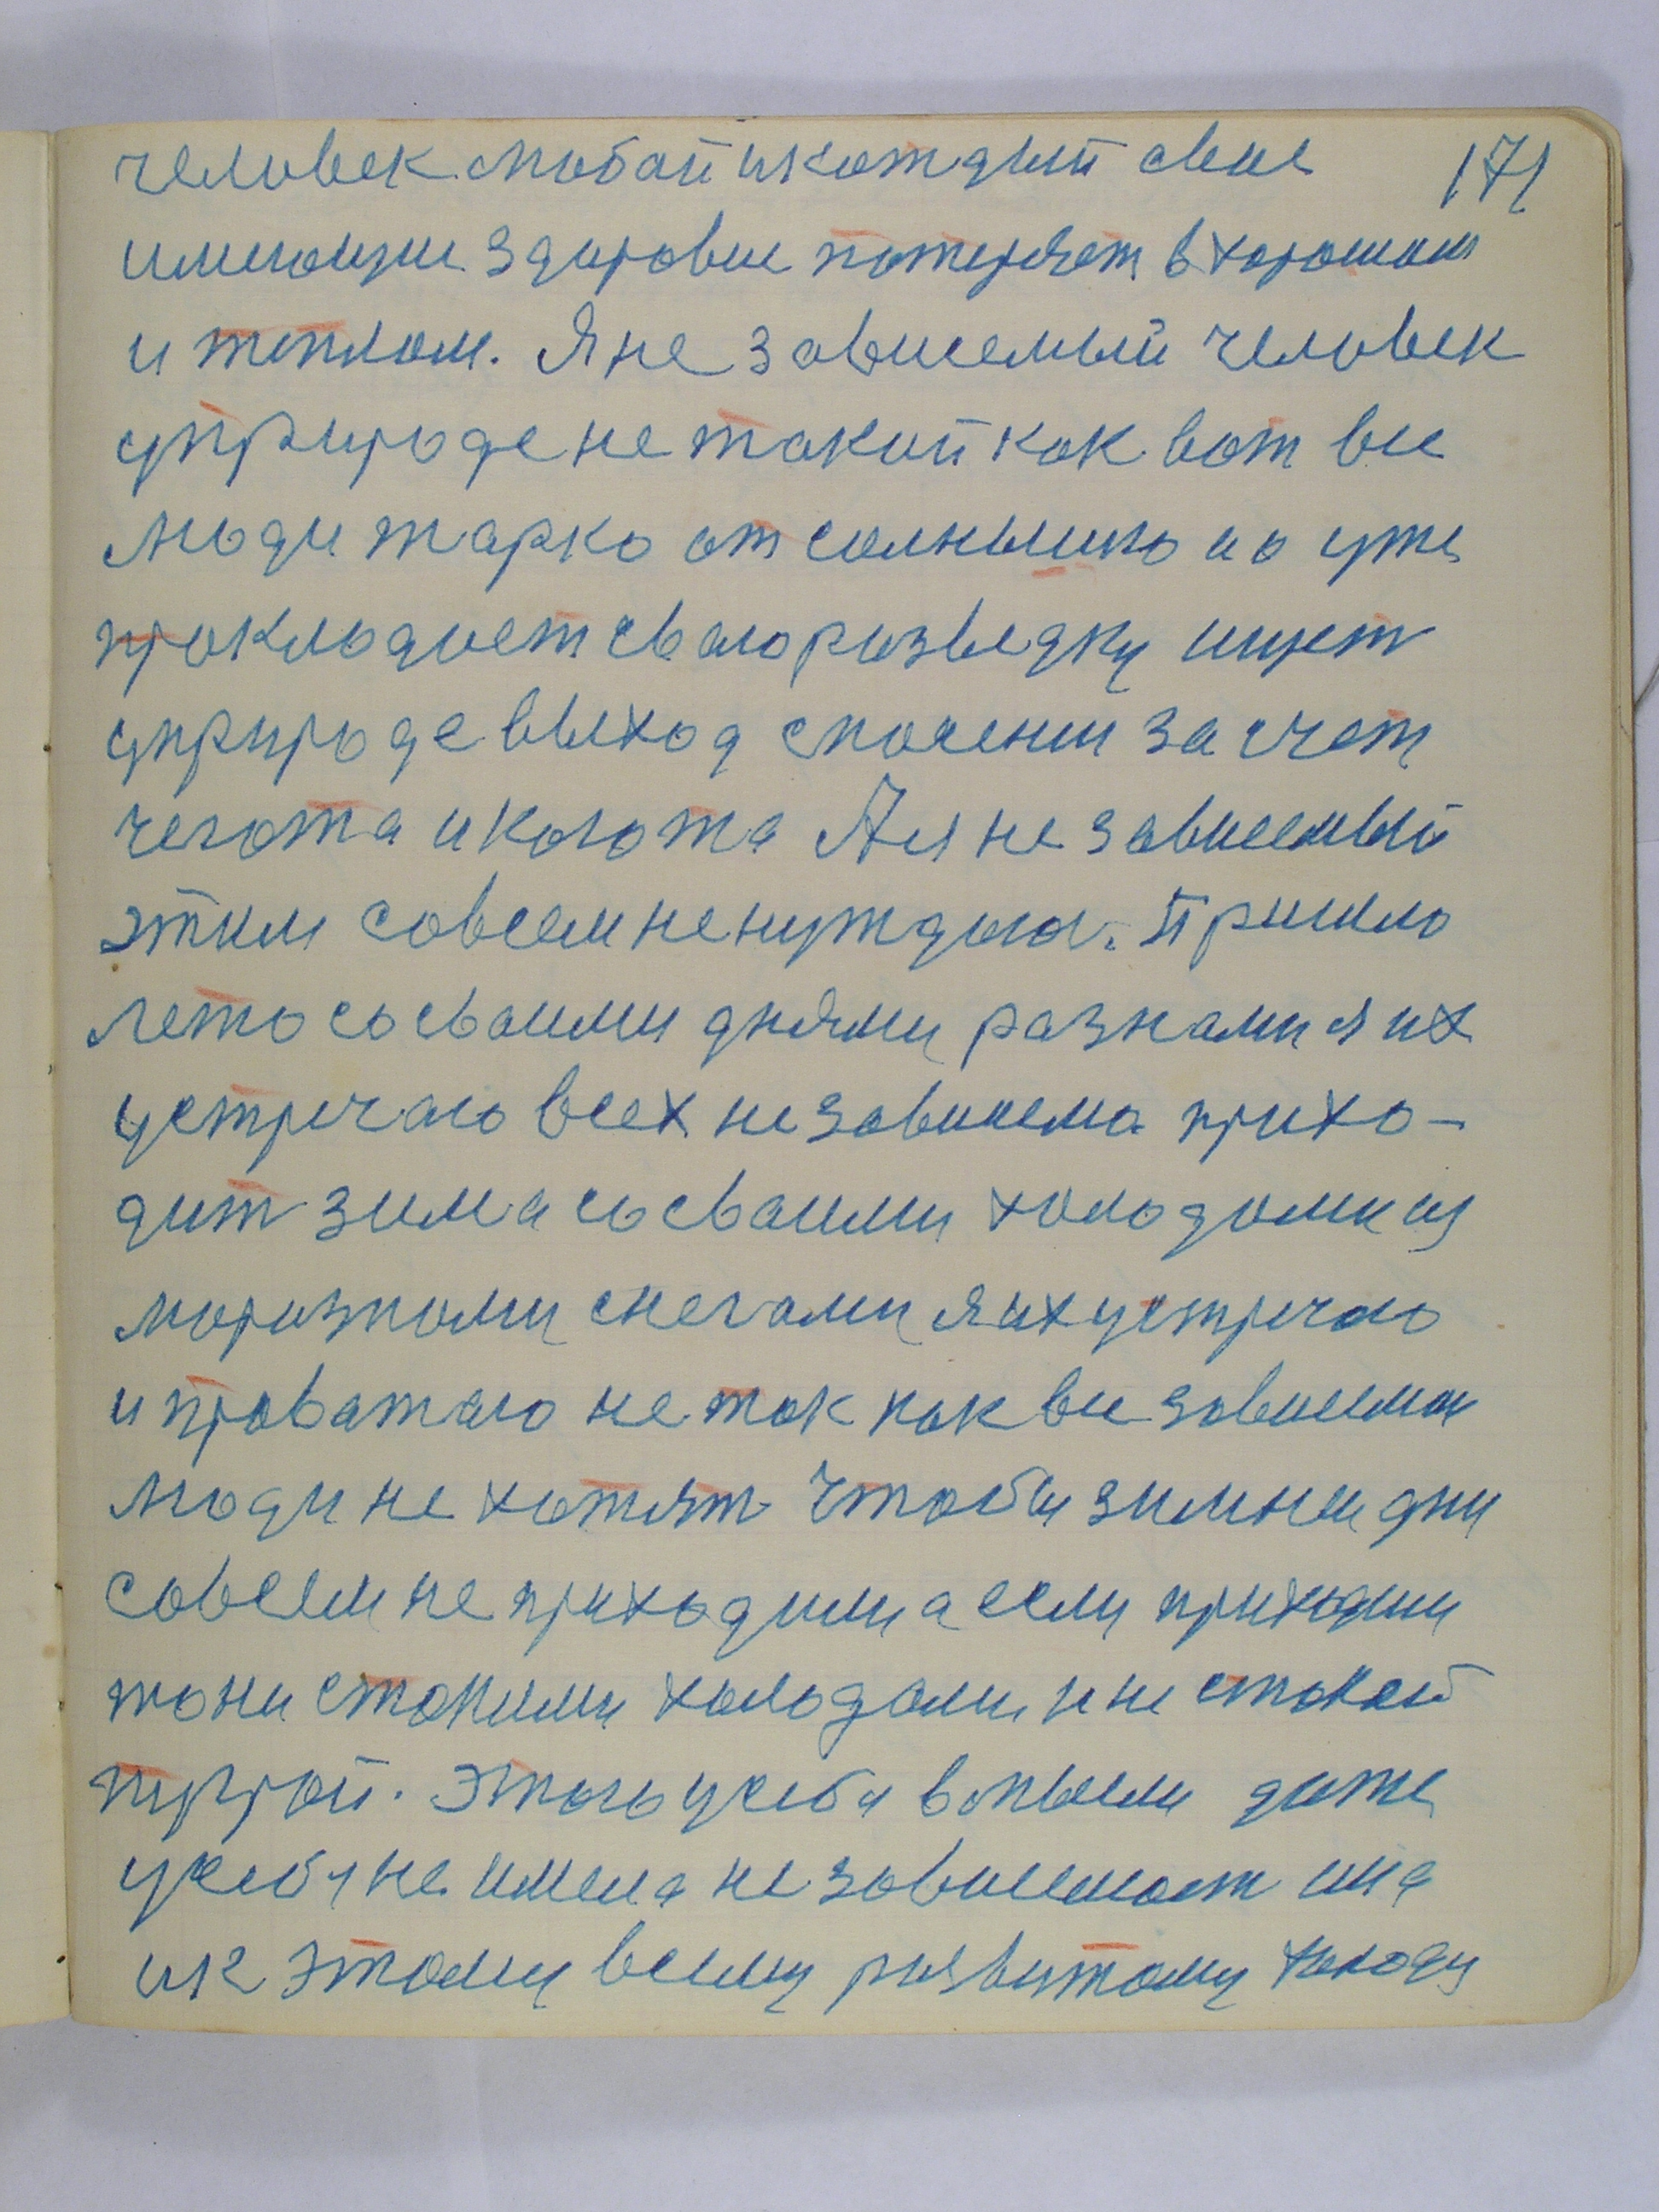 171
человек любой и кождый свое
имеющие здоровие потеряет в хорошом
и теплом. Я не зависемый человек
уприроде не такой как вот все
люди жарко от солнышко но уже
прокладует свою розведку ищет
уприроде выход спосении за счет
чегота и когота А я не зависемый
этим совсем ненуждаюс. Пришло
лето со своими днями разнами я их
устречаю всех независема прихо-
дит зима со своими холодоми и
морозноми снегами я их устречаю
и провожаю не так как все зависемои
люди не хотят чтобы зимнеи дни
совсем не приходили а если приходили
то ни стокими холодами и не стокой
пургой. Этого усебя в мысли даже
усебя не имела независемост она
ик этому всему розвитому холоду